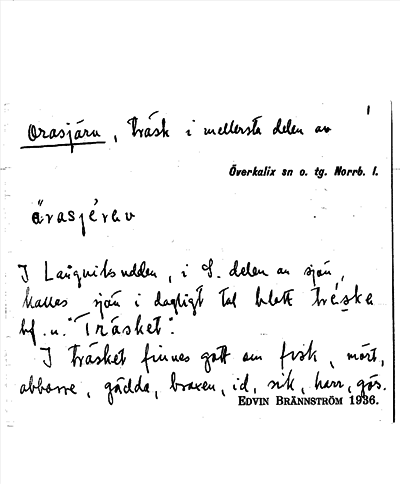 Orasjärv, träsk i mellersta delen av
1
Överkalix sn o. tg. Norrb. l.
ärasjérav
I Långviksudden, i S. delen av sjön,
kallas sjön i dagligt tal blott tréske
bf. n. "Träsket".
I träsket finnes gott om fisk, mört,
abborre, gädda, braxen, id, sik, harr, gös.
EDVIN BRÄNNSTRÖM 1936.